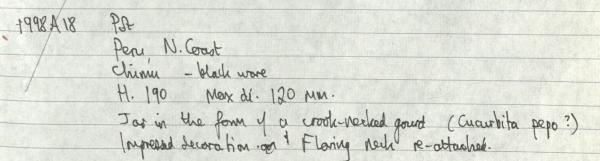 1998A18 Pot
Peru, N. Coast
Chimu - black ware
H. 190 Max di. 120 mm.
Jar in the form of a crook-necked gourd (Cucurbita pepo?)
Impressed decoration & Flaring neck re-attached.